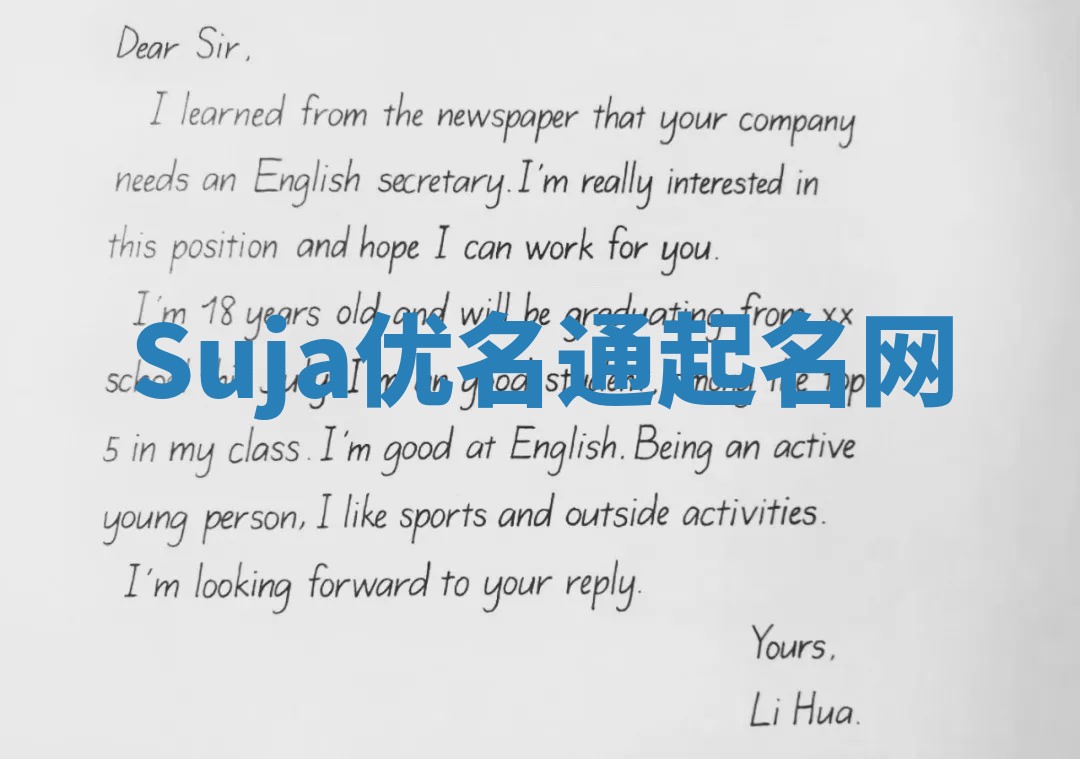 Dear Sir,
I learned from the newspaper that your company
needs an English secretary. I'm really interested in
this position and hope I can work for you.
I'm 18 years old and will be graduating from xx
Suja优名通起名网
school this July. I'm an good student, among the top
5 in my class. I'm good at English. Being an active
young person, I like sports and outside activities.
I'm looking forward to your reply.
Yours,
Li Hua.